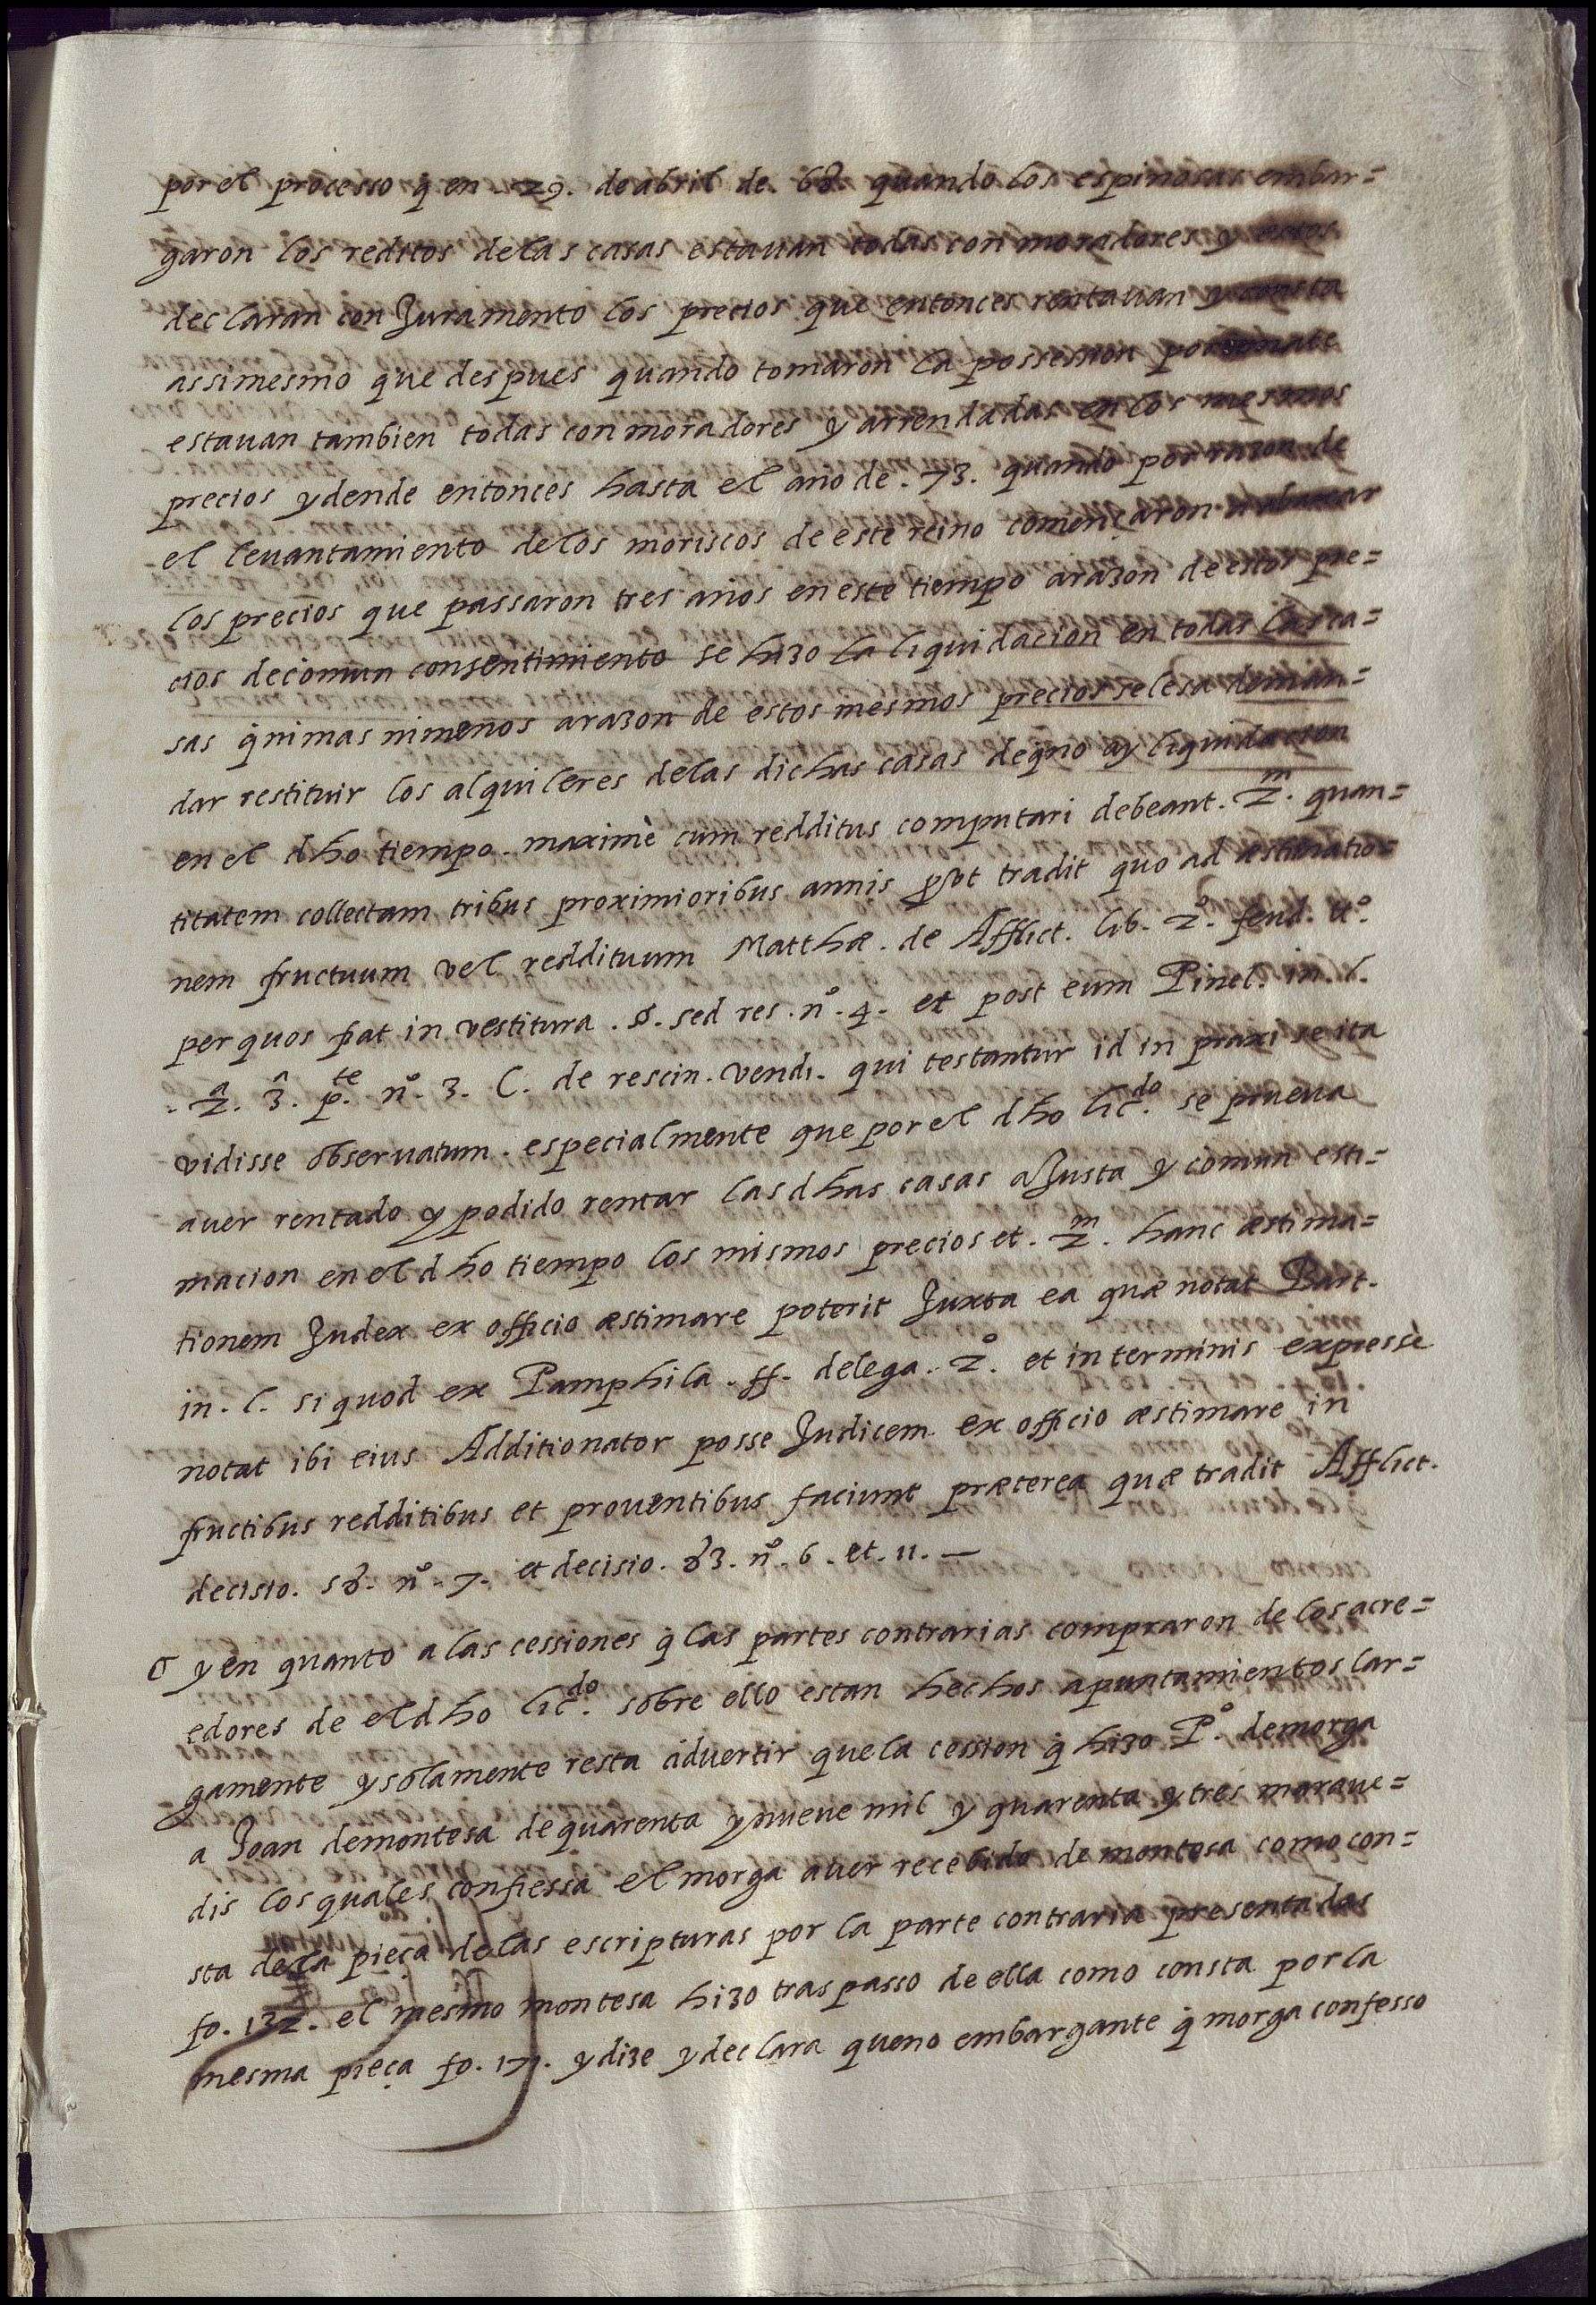 por el processo q̃ en 29. de abril de 68 quando los espinosas embar=
garon los reditos de las casas estauan todas con moradores y estos
declaran con Juramento los precios que entonces rentauan y consta
assimesmo que despues quando tomaron la possession por
estauan tambien todas con moradores y arrendadas en los mesmos
precios y dende entonces hasta el año de . 73. quando por razon de
el leuantamiento de los moriscos de este reino començaron a abaxar
los precios que passaron tres años en este tiempo a razon de estos pre=
cios de comun consentimiento se hizo la liquidacion en todas las ca=
sas q̃ ni mas ni menos a razon de estos mesmos precios se les a deman=
dar restituir los alquileres de las dichas casas de q̃ no ay liquidacion
en el dho tiempo. maximè cum redditus computari debeant. 2.m quan=
titatem collectam tribus proximioribus annis prout tradit quo ad æstimatio=
nem fructuum vel reddituum Matthæ. de Afflict. lib. 2.º feud. tt.º
per quos fiat in vestitura . §. sed res . nº . 4. et post eum Pinel. in. l.
. 2.a 3.a p.te nº. 3. C. de rescin. vendi. qui testantur id in praxi se ita
vidisse obseruatum. especialmente que por el dho licdo. se prueua
auer rentado y podido rentar las dhas casas a Justa y comun esti=
macion en el dho tiempo los mismos precios et . 2.m hanc æstima=
tionem Judex ex officio æstimare poterit Juxta ea quæ notat Bart.
in. l. si quod ex Pamphila. ff. de lega. 2.º et in terminis expressè
notat ibi eius Additionator posse Judicem ex officio æstimare in
fructibus redditibus et prouentibus faciunt præterea quæ tradit Afflict.
decisio. 58. nº. 7. et decisio. 83. nº. 6. et. 11. —
σ y en quanto a las cessiones q̃ las partes contrarias compraron de los acre=
edores de el dho licdo. sobre ello estan hechos apuntamientos lar=
gamente y solamente resta aduertir que la cession q̃ hizo Pº. de morga
a Joan de montesa de quarenta y nueue mil y quarenta y tres maraue=
dis los quales confiessa el morga auer recebido de montesa como con=
sta de la pieça de las escripturas por la parte contraria presentadas
fo. 132. el mesmo montesa hizo traspasso de ella como consta por la
mesma pieça fo. 171. y dize y declara que no embargante q̃ morga confesso